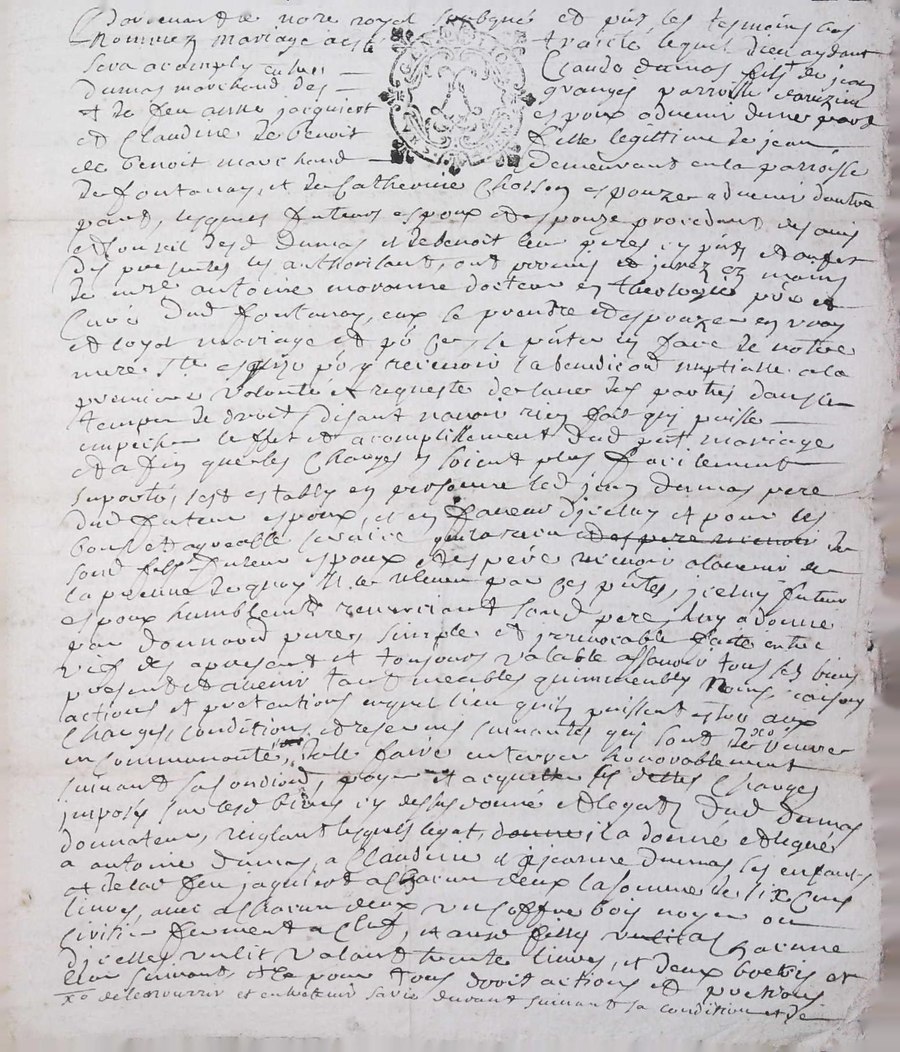 Pardevant le nore royal soubsigné et pnt les tesmoins cy bas
nommez mariage a esté traicté lequel dieu aydant
sera acomply entre Claude dumas fils de jean
dumas marchand des granges parroisse
et de feu anne jacquiert espoux advenir dune part
et Claudine de benoit fille legitime de jean
de benoit marchand demeurant en la parroisse
de fontanay, et de Catherine espouze advenir dautre
part, lesquels futeurs espoux et espouze procedant des avis
et conseil desd dumas et de benoit leur peres cy pnts et
des presentes les authorisant, ont promis et jurez ez mains
de mre antoine docteur en theologie pbre et
Curé dud fontanay, eux se prendre et espouzer en vray
et loyal mariage et se pnter en face de notre
mere Ste esglize po y recevoir la benediction nuptialle a la
premiere volonté et requeste de lune des parties dans le
temps de droit, disant navoir rien fait qui puisse
empecher leffet et acomplissement dud pnt mariage
et afin que les Charges en soient plus facilement
suportés sest estably en personne led jean dumas pere
dud futeur espoux, et en faveur dicelluy et pour les
bons et agreable service quil a receu de
sond fils futeur espoux et espere recevoir a ladvenir
espoux humblement remerciant sond pere luy a donne
par donnaon pure simple et irrevocable faite entre
vifs des apresent et toujours valable assavoir tous ses biens
present et avenir tant meubles quimmeubles noms raisons
actions et pretentions en quel lieu quils puissent estre aux
Charges, conditions et reserves suivantes qui sont de vivre
en Communauté, de le faire enterrer honnorablement
suivant sa condion, payer et acquitter les dettes Charges
imposés sur lesd biens cy dessus donné et legats dud dumas
donnateur, reiglant lesquels legats, il a donne et legué
a antoine dumas, a Claudine et a jeanne dumas ses enfants
et de lad feu jaquiert a Chacun deux la somme de six Cens
livres, avec a Chacun deux un Coffre bois noyer ou
fermant a Clef, et aux filles a Chacune
dicelles un lit valant trente livres, et deux et
et ce pour tous droit actions et
xo de le nourrir et entretenir sa vie durant suivant sa condition et de